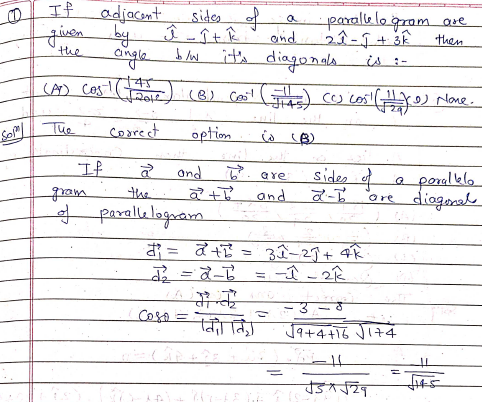 ① If adjacent sides of a parallelogram are
given by î - ĵ + k̂ and 2î - ĵ + 3k̂ then
the angle b/w it's diagonals is :-
(A) cos⁻¹(√45/√2016) (B) cos⁻¹(-11/√145) (C) cos⁻¹(11/√29) (D) None.
Sol) The correct option is (B)
If a⃗ and b⃗ are sides of a parallelo
gram the a⃗+b⃗ and a⃗-b⃗ are diagonal
of parallelogram
d⃗₁ = a⃗+b⃗ = 3î-2ĵ+4k̂
d⃗₂ = a⃗-b⃗ = -î - 2k̂
cosθ = d⃗₁·d⃗₂ / |d⃗₁| |d⃗₂| = -3-8 / √9+4+16 √1+4
= -11 / √5×√29 = 11/√145